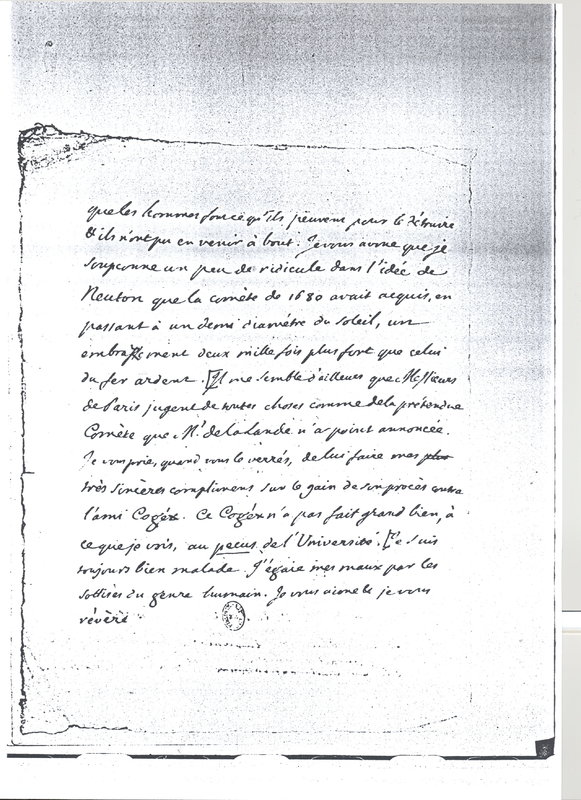 que les hommes font ce qu'ils peuvent pour le détruire
& ils n'ont pu en venir à bout. Je vous avoue que je
soupçonne un peu de ridicule dans l'idée de
Neuton que la comète de 1680 avait acquis, en
passant à un demi diamétre du soleil, un
embrasement deux mille fois plus fort que celui
du fer ardent. [Il me semble d'ailleurs que Messieurs
de Paris jugent de toutes choses comme de la prétendue
Comète que Mr. de la Lande n'a point annoncée.
Je vous prie, quand vous le verrés, de lui faire mes plus
très sincères complimens sur le gain de son procès contre
l'ami Cogéx. Ce Cogéx n'a pas fait grand bien, à
ce que je vois, au pecus de l'Université. [Je suis
toujours bien malade. J'égaie mes maux par les
sottises du genre humain. Je vous aime & je vous
révère